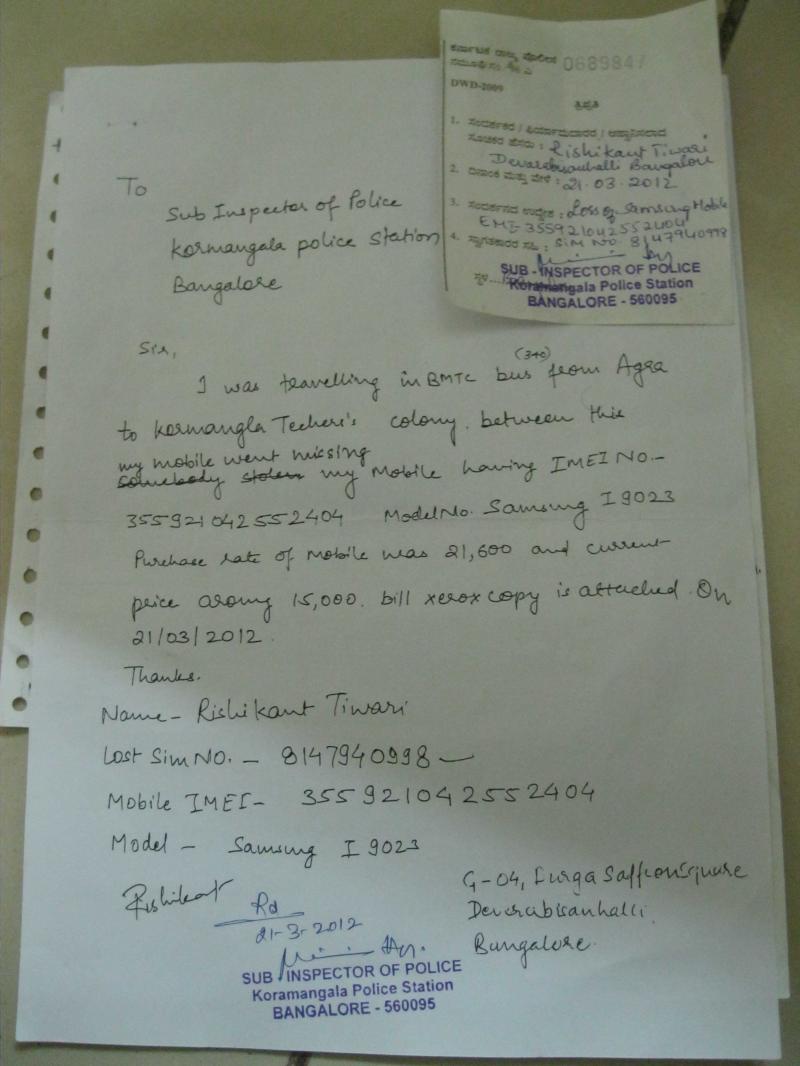 ಕರ್ನಾಟಕ ರಾಜ್ಯ ಪೊಲೀಸ್
0689847
DWD-2009
ಸ್ವೀಕೃತಿ
1. ಸಂದರ್ಶಕರ / ಫಿರ್ಯಾದುದಾರರ /
ಸೂಚಕರ ಹೆಸರು : Rishikant Tiwari
Devarabisanhalli Bangalore
2. ದಿನಾಂಕ ಮತ್ತು ವೇಳೆ : 21.03.2012
3. ಸಂದರ್ಶನದ ಉದ್ದೇಶ : Loss of Samsung Mobile
EMI- 355921042552404
4. ಸ್ವಾಗತಕಾರರ ಸಹಿ : Sim No. 8147940998
ಸ್ಥಳ
SUB - INSPECTOR OF POLICE
Koramangala Police Station
BANGALORE - 560095
To
Sub Inspector of Police
Kormangala police Station
Bangalore
Sir,
I was travelling in BMTC bus (340) from Agra
to Kormangla Techeri's colony. between this
my mobile went missing
somebody stolen my Mobile having IMEI No.-
355921042552404 Model No. Samsung I 9023
Purchase rate of mobile was 21,600 and current
price aroung 15,000. bill xerox copy is attached. On
21/03/2012.
Thanks.
Name - Rishikant Tiwari
Lost Sim NO. - 8147940998 -
Mobile IMEI- 355921042552404
Model - Samsung I 9023
Rishikant
G-04, Durga Saffron Square
Deverabisanhalli
Bangalore.
Rd
21-3-2012
SUB INSPECTOR OF POLICE
Koramangala Police Station
BANGALORE - 560095